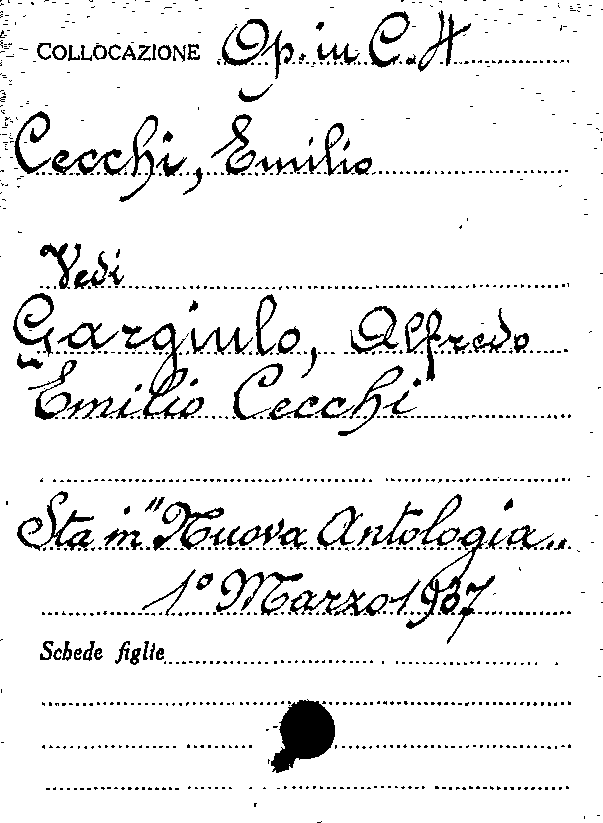 COLLOCAZIONE Op. in C. 4
Cecchi, Emilio
Vedi
Gargiulo, Alfredo
"Emilio Cecchi"
Sta in "Nuova Antologia„
1° Marzo 1937
Schede figlie